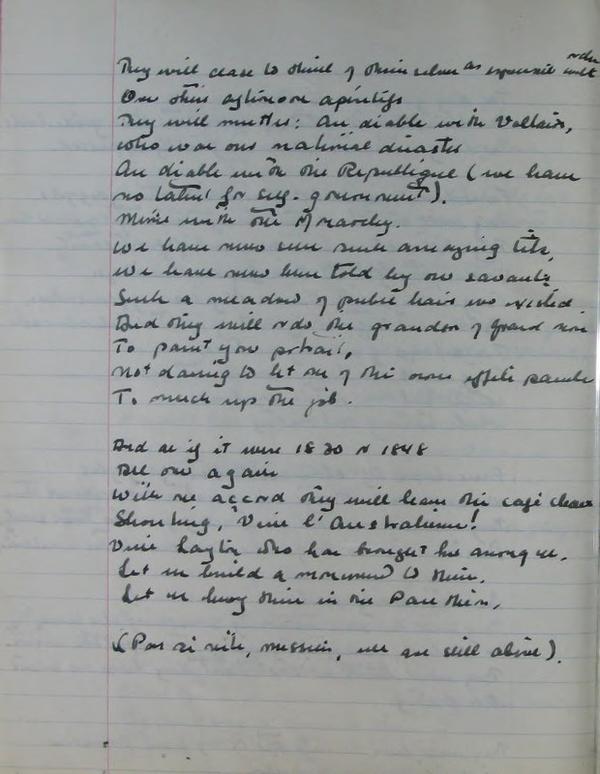 They will cease to think of themselves as exquisite
Over their afternoon apéritifs
They will mutter: Au diable with Voltaire,
Who was our national disaster
Au diable with the République (we have
no talent for self-government).
Merde with the Monarchy.
We have never seen such amazing tits,
We have never been told by our savants
Such a meadow of pubic hairs ever existed.
And they will order the grandson of grand
To paint your portrait,
Not daring to let one of their own effete
To muck up the job.
And as if it were 1830 or 1848
All over again
With one accord they will leave their café chairs
Shouting, Vive l'Australienne!
Vive Layton who has brought her among us.
Let us build a monument to them.
Let us bury them in the Pantheon.
(Pas si vite, messieurs, we are still alive).